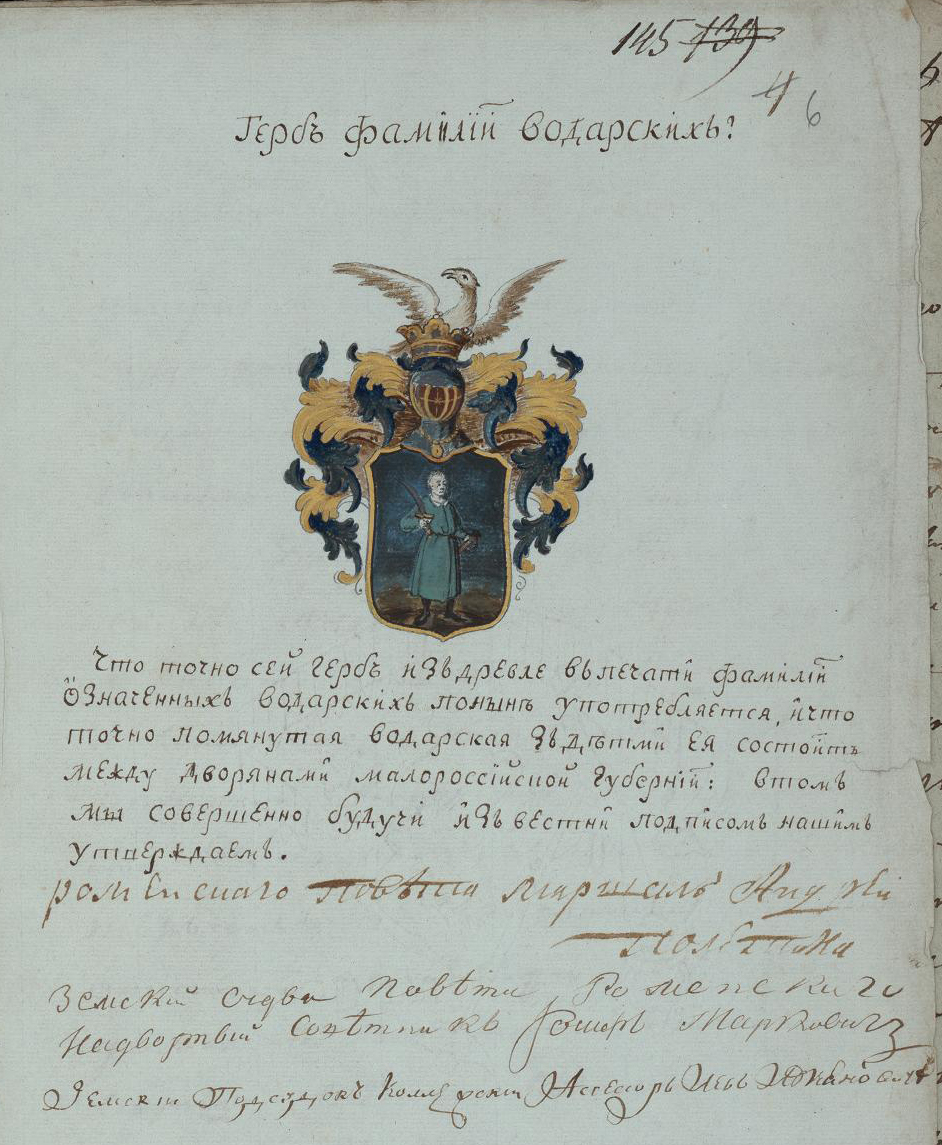 145 139
4 6
Гербъ фамилїй водарскихъ?
Что точно сей гербъ изъдревле въпечати фамилїй
означенныхъ водарскихъ понынѣ употребляется, ичто
точно помянутая водарская зъдѣтми ея состоитъ
между дворянами малороссїйской губернїи: втомъ
мы совершенно будучи изъвестни подписомъ нашимъ
утверждаемъ.
роменскаго повѣта маршалъ Андрей
Полѣтика
Земский судья повѣта Роменскаго
Надворный совѣтникъ Маркович
Земский Подсудокъ Асесоръ